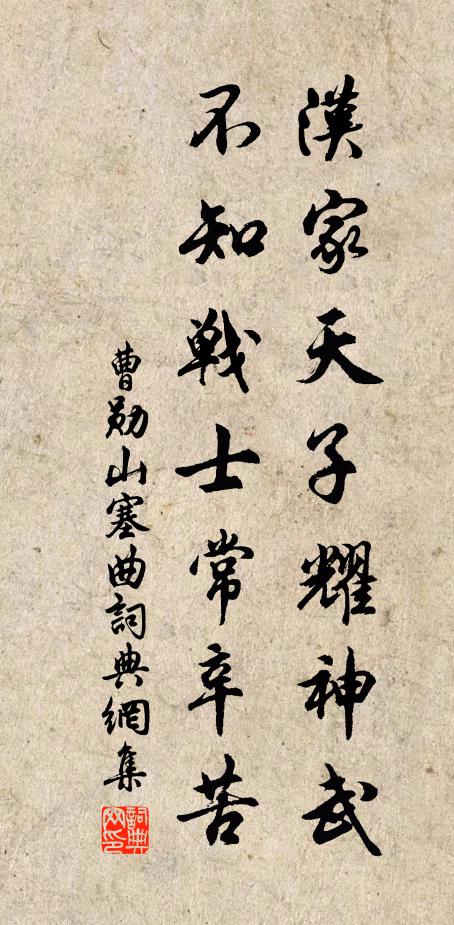 漢家天子耀神武
不知戰士常辛苦
曹勛山塞曲詞典網集
詞典網印